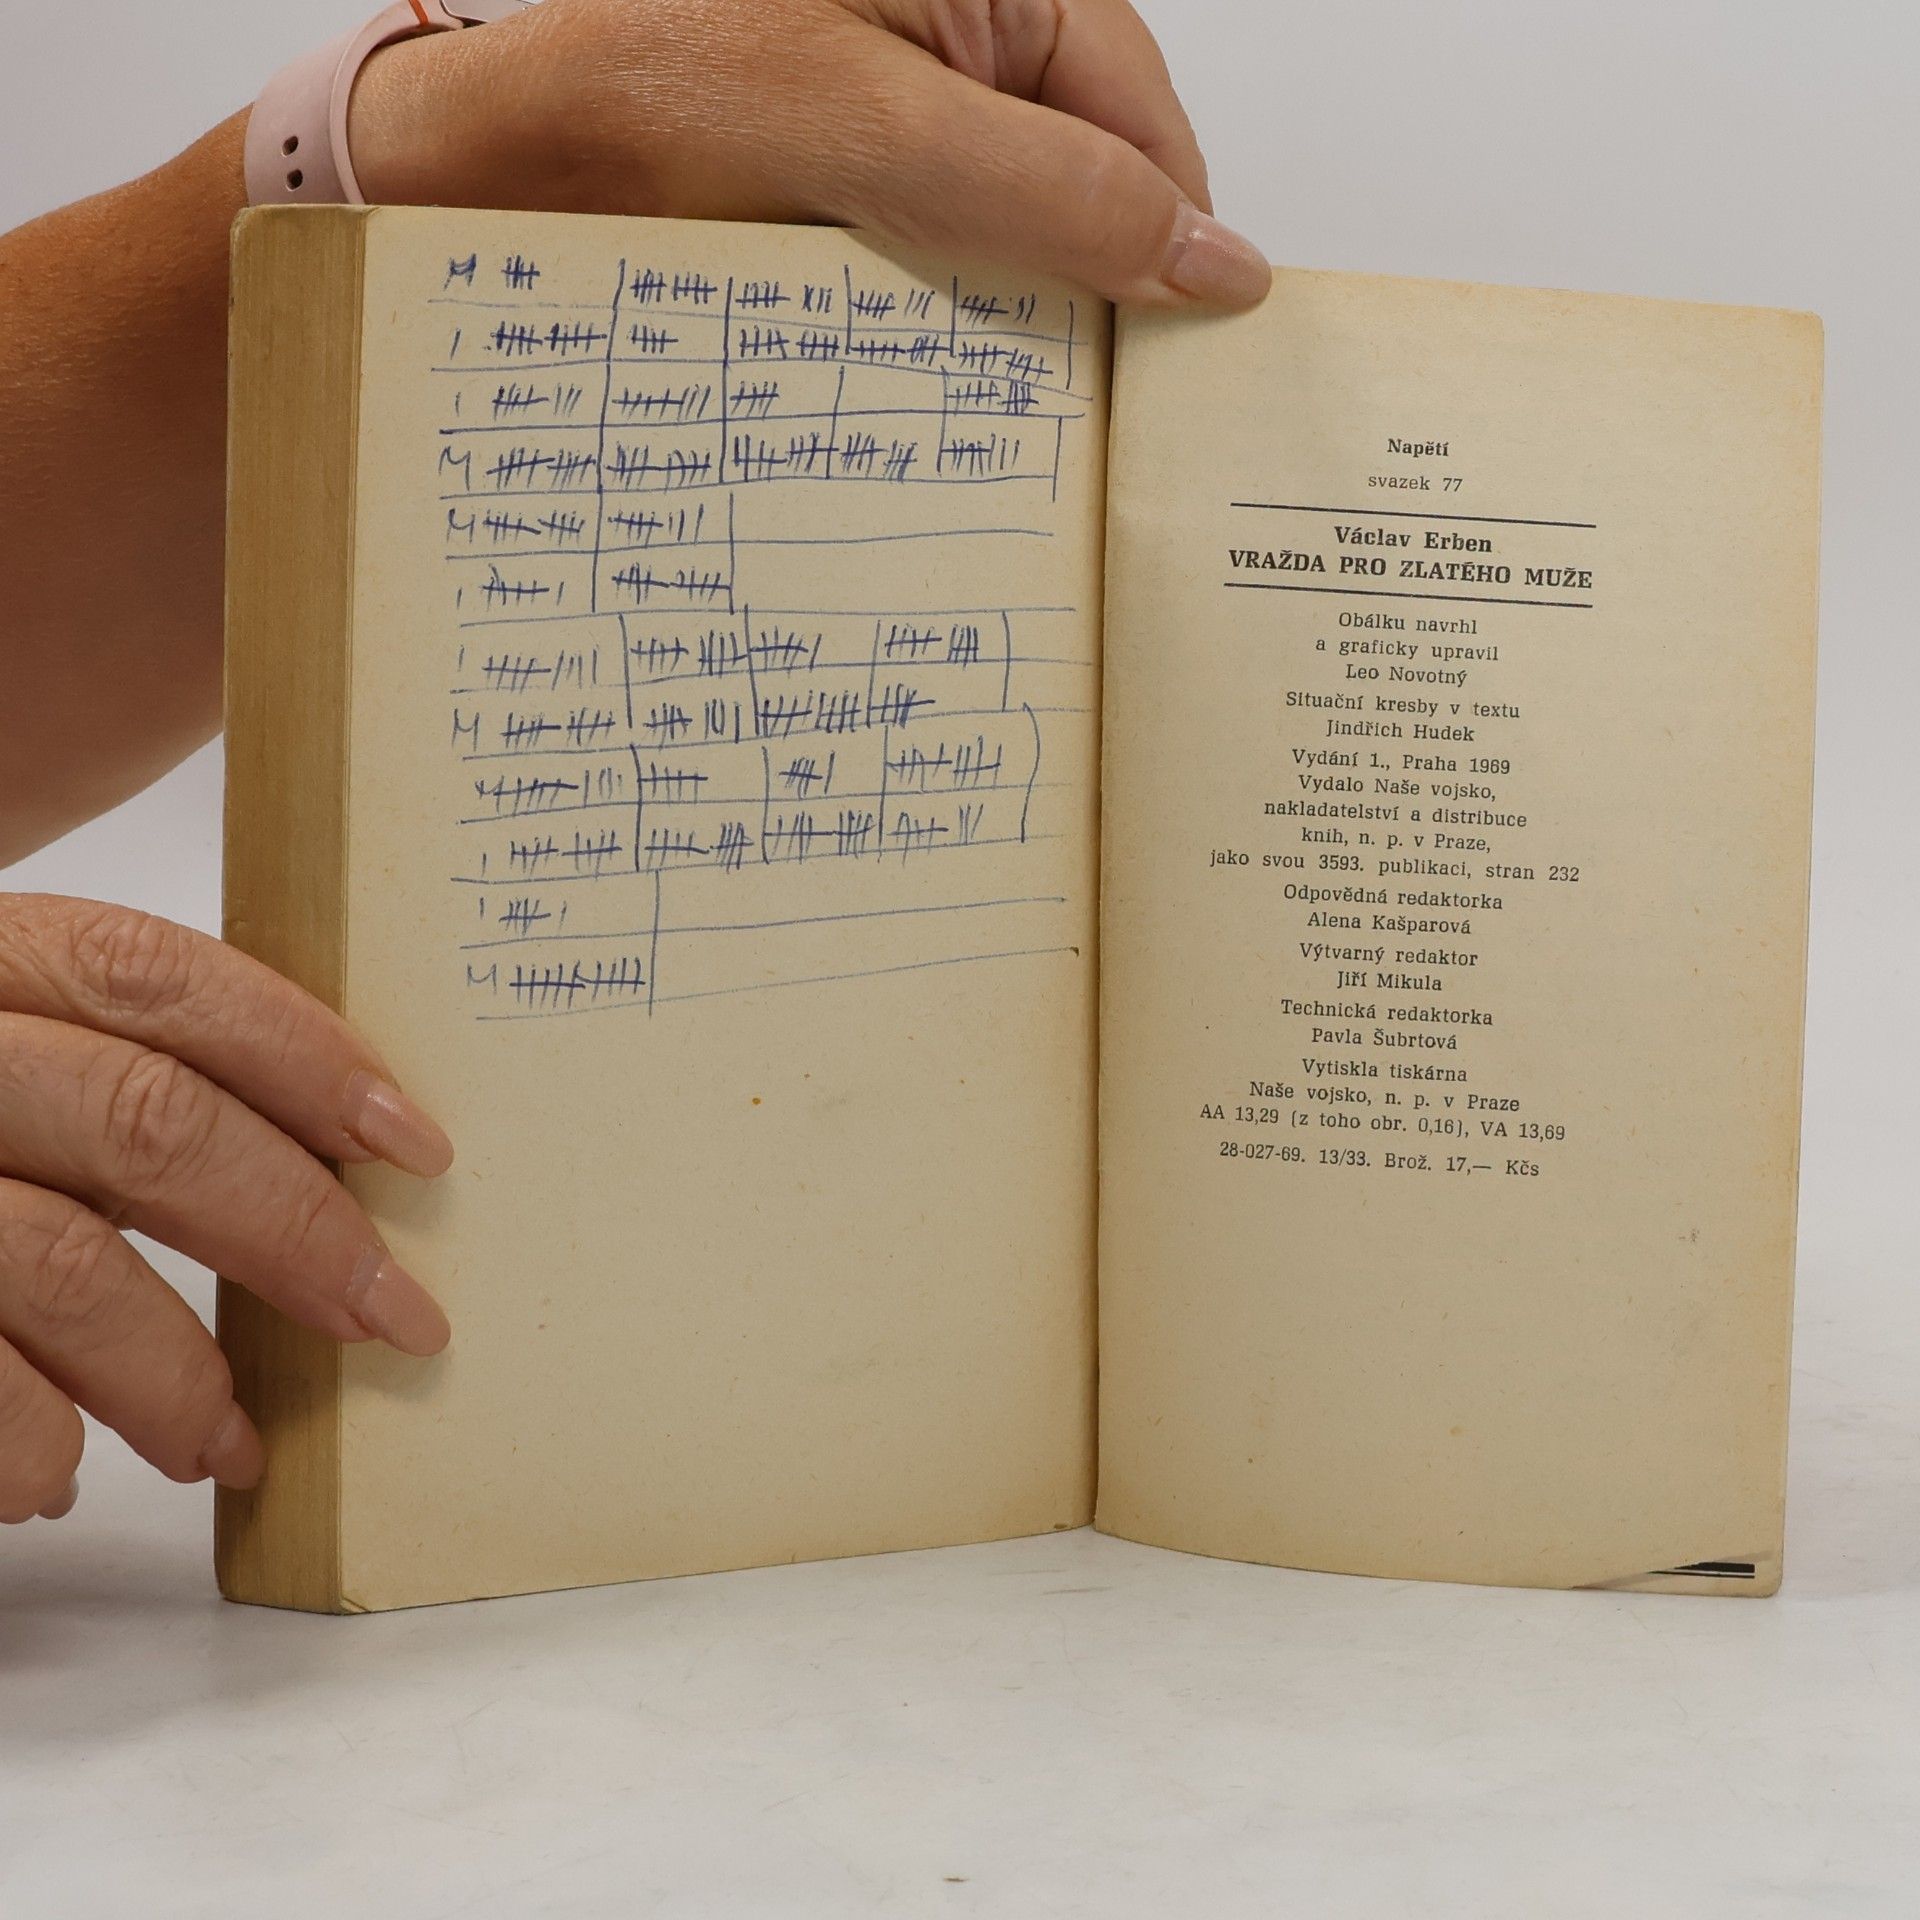 M
I
I
M
M
I
I
M
M
I
I
M
Napětí
svazek 77
Václav Erben
VRAŽDA PRO ZLATÉHO MUŽE
Obálku navrhl
a graficky upravil
Leo Novotný
Situační kresby v textu
Jindřich Hudek
Vydání 1., Praha 1969
Vydalo Naše vojsko,
nakladatelství a distribuce
knih, n. p. v Praze,
jako svou 3593. publikaci, stran 232
Odpovědná redaktorka
Alena Kašparová
Výtvarný redaktor
Jiří Mikula
Technická redaktorka
Pavla Šubrtová
Vytiskla tiskárna
Naše vojsko, n. p. v Praze
AA 13,29 (z toho obr. 0,16), VA 13,69
28-027-69. 13/33. Brož. 17,— Kčs